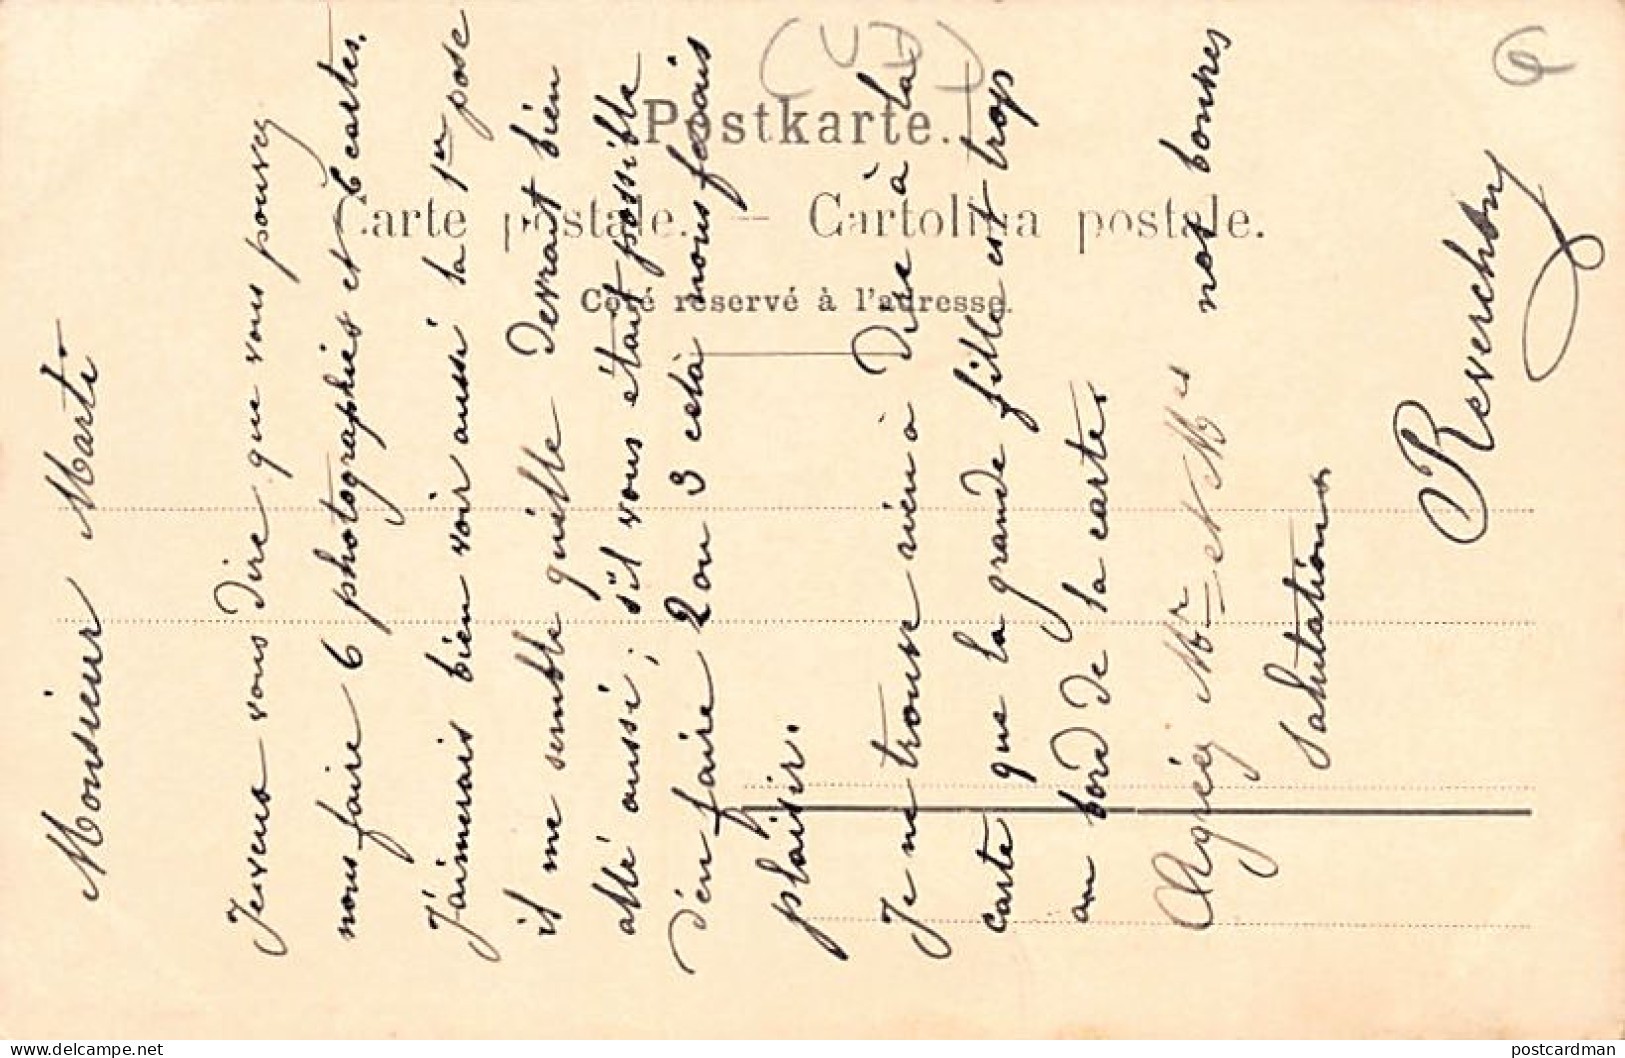 Postkarte.
Carte postale. — Cartolina postale.
Côté réservé à l'adresse.
Monsieur Marti
Je veux vous dire que vous pouvez
nous faire 6 photographies et 6 cartes.
J'aimerais bien voir aussi la 1re pose
il me semble qu'elle devrait bien
allé aussi; s'il vous étant possible
d'en faire 2 ou 3 celà nous ferais
plaisir.
Je ne trouve rien à dire à la
carte que la grande fille est trop
au bord de la carte
Agréez Mr et Mes nos bonnes
salutations
Reverchon
postcardman